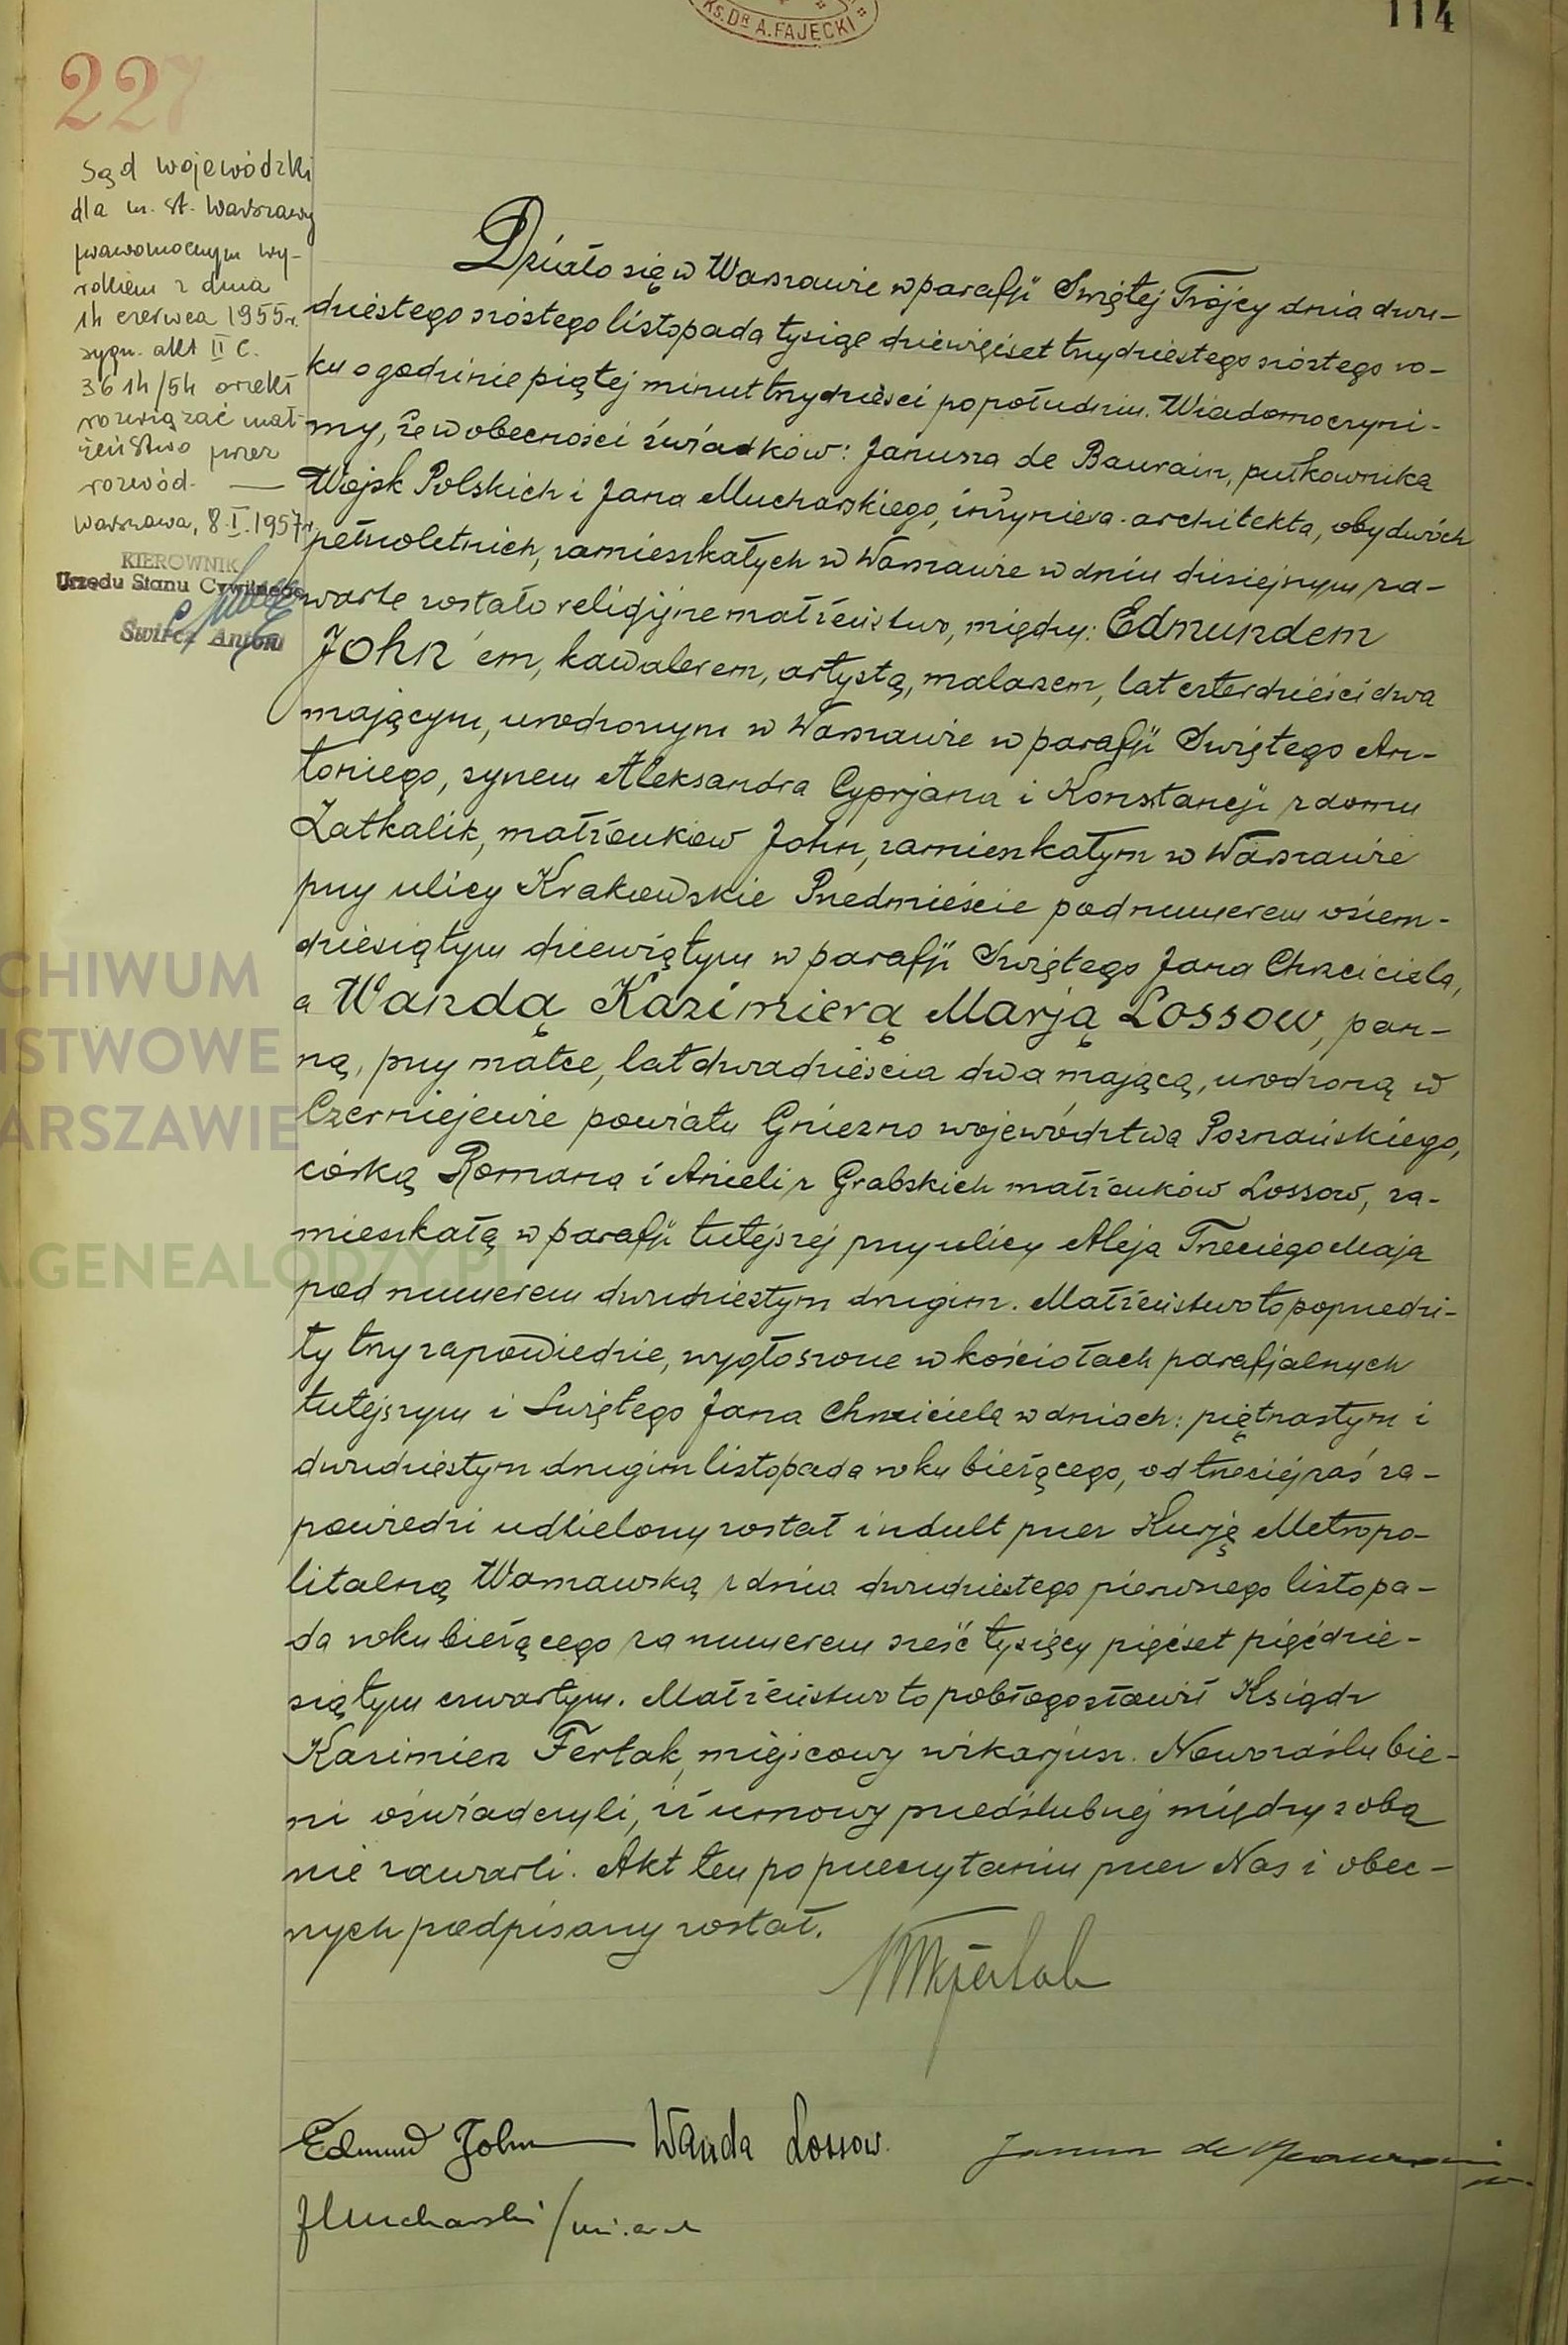 KS. DR A. FAJĘCKI
114
227
Sąd wojewódzki
dla m. st. Warszawy
prawomocnym wy-
rokiem z dnia
14 czerwca 1955 r.
sygn. akt II C.
3614/54 orzekł
rozwiązać mał-
żeństwo przez
rozwód. —
Warszawa, 8.I.1957 r.
KIEROWNIK
Urzędu Stanu Cywilnego
Antoni
Działo się w Warszawie w parafji Świętej Trójcy dnia dwu-
dziestego szóstego listopada tysiąc dziewięćset trzydziestego szóstego ro-
ku o godzinie piątej minut trzydzieści po południu. Wiadomo czyni-
my, że w obecności świadków: Janusza de Beaurain, pułkownika
Wojsk Polskich i Jana Mucharskiego, inżyniera-architekta, obydwóch
pełnoletnich, zamieszkałych w Warszawie w dniu dzisiejszym za-
warte zostało religijne małżeństwo, między: Edmundem
John'em, kawalerem, artystą, malarzem, lat czterdzieści dwa
mającym, urodzonym w Warszawie w parafji Świętego An-
toniego, synem Aleksandra Cyprjana i Konstancji z domu
Zatkalik, małżonków John, zamieszkałym w Warszawie
przy ulicy Krakowskie Przedmieście pod numerem osiem-
dziesiątym dziewiątym w parafji Świętego Jana Chrzciciela,
a Wandą Kazimierą Marją Lossow, pan-
ną, przy matce, lat dwadzieścia dwa mającą, urodzoną w
Czerniejewie powiatu Gniezno województwa Poznańskiego,
córką Romana i Anieli z Grabskich małżonków Lossow, za-
mieszkałą w parafji tutejszej przy ulicy Aleja Trzeciego Maja
pod numerem dwudziestym drugim. Małżeństwo to poprzedzi-
ły trzy zapowiedzie, wygłoszone w kościołach parafjalnych
tutejszym i Świętego Jana Chrzciciela w dniach: piętnastym i
dwudziestym drugim listopada roku bieżącego, od trzeciej zaś za-
powiedzi udzielony został indult przez Kurję Metropo-
litalną Warszawską z dnia dwudziestego pierwszego listopa-
da roku bieżącego za numerem sześć tysięcy pięćset pięćdzie-
siątym czwartym. Małżeństwo to pobłogosławił Ksiądz
Kazimierz Fertak, miejscowy wikarjusz. Nowozaślubie-
ni oświadczyli, iż umowy przedślubnej między sobą
nie zawarli. Akt ten po przeczytaniu przez Nas i obec-
nych podpisany został.
Edmund John Wanda Lossow. Janusz de Beaurain
JMucharski /
ARCHIWUM
PAŃSTWOWE
WARSZAWIE
GENEALODZY.PL